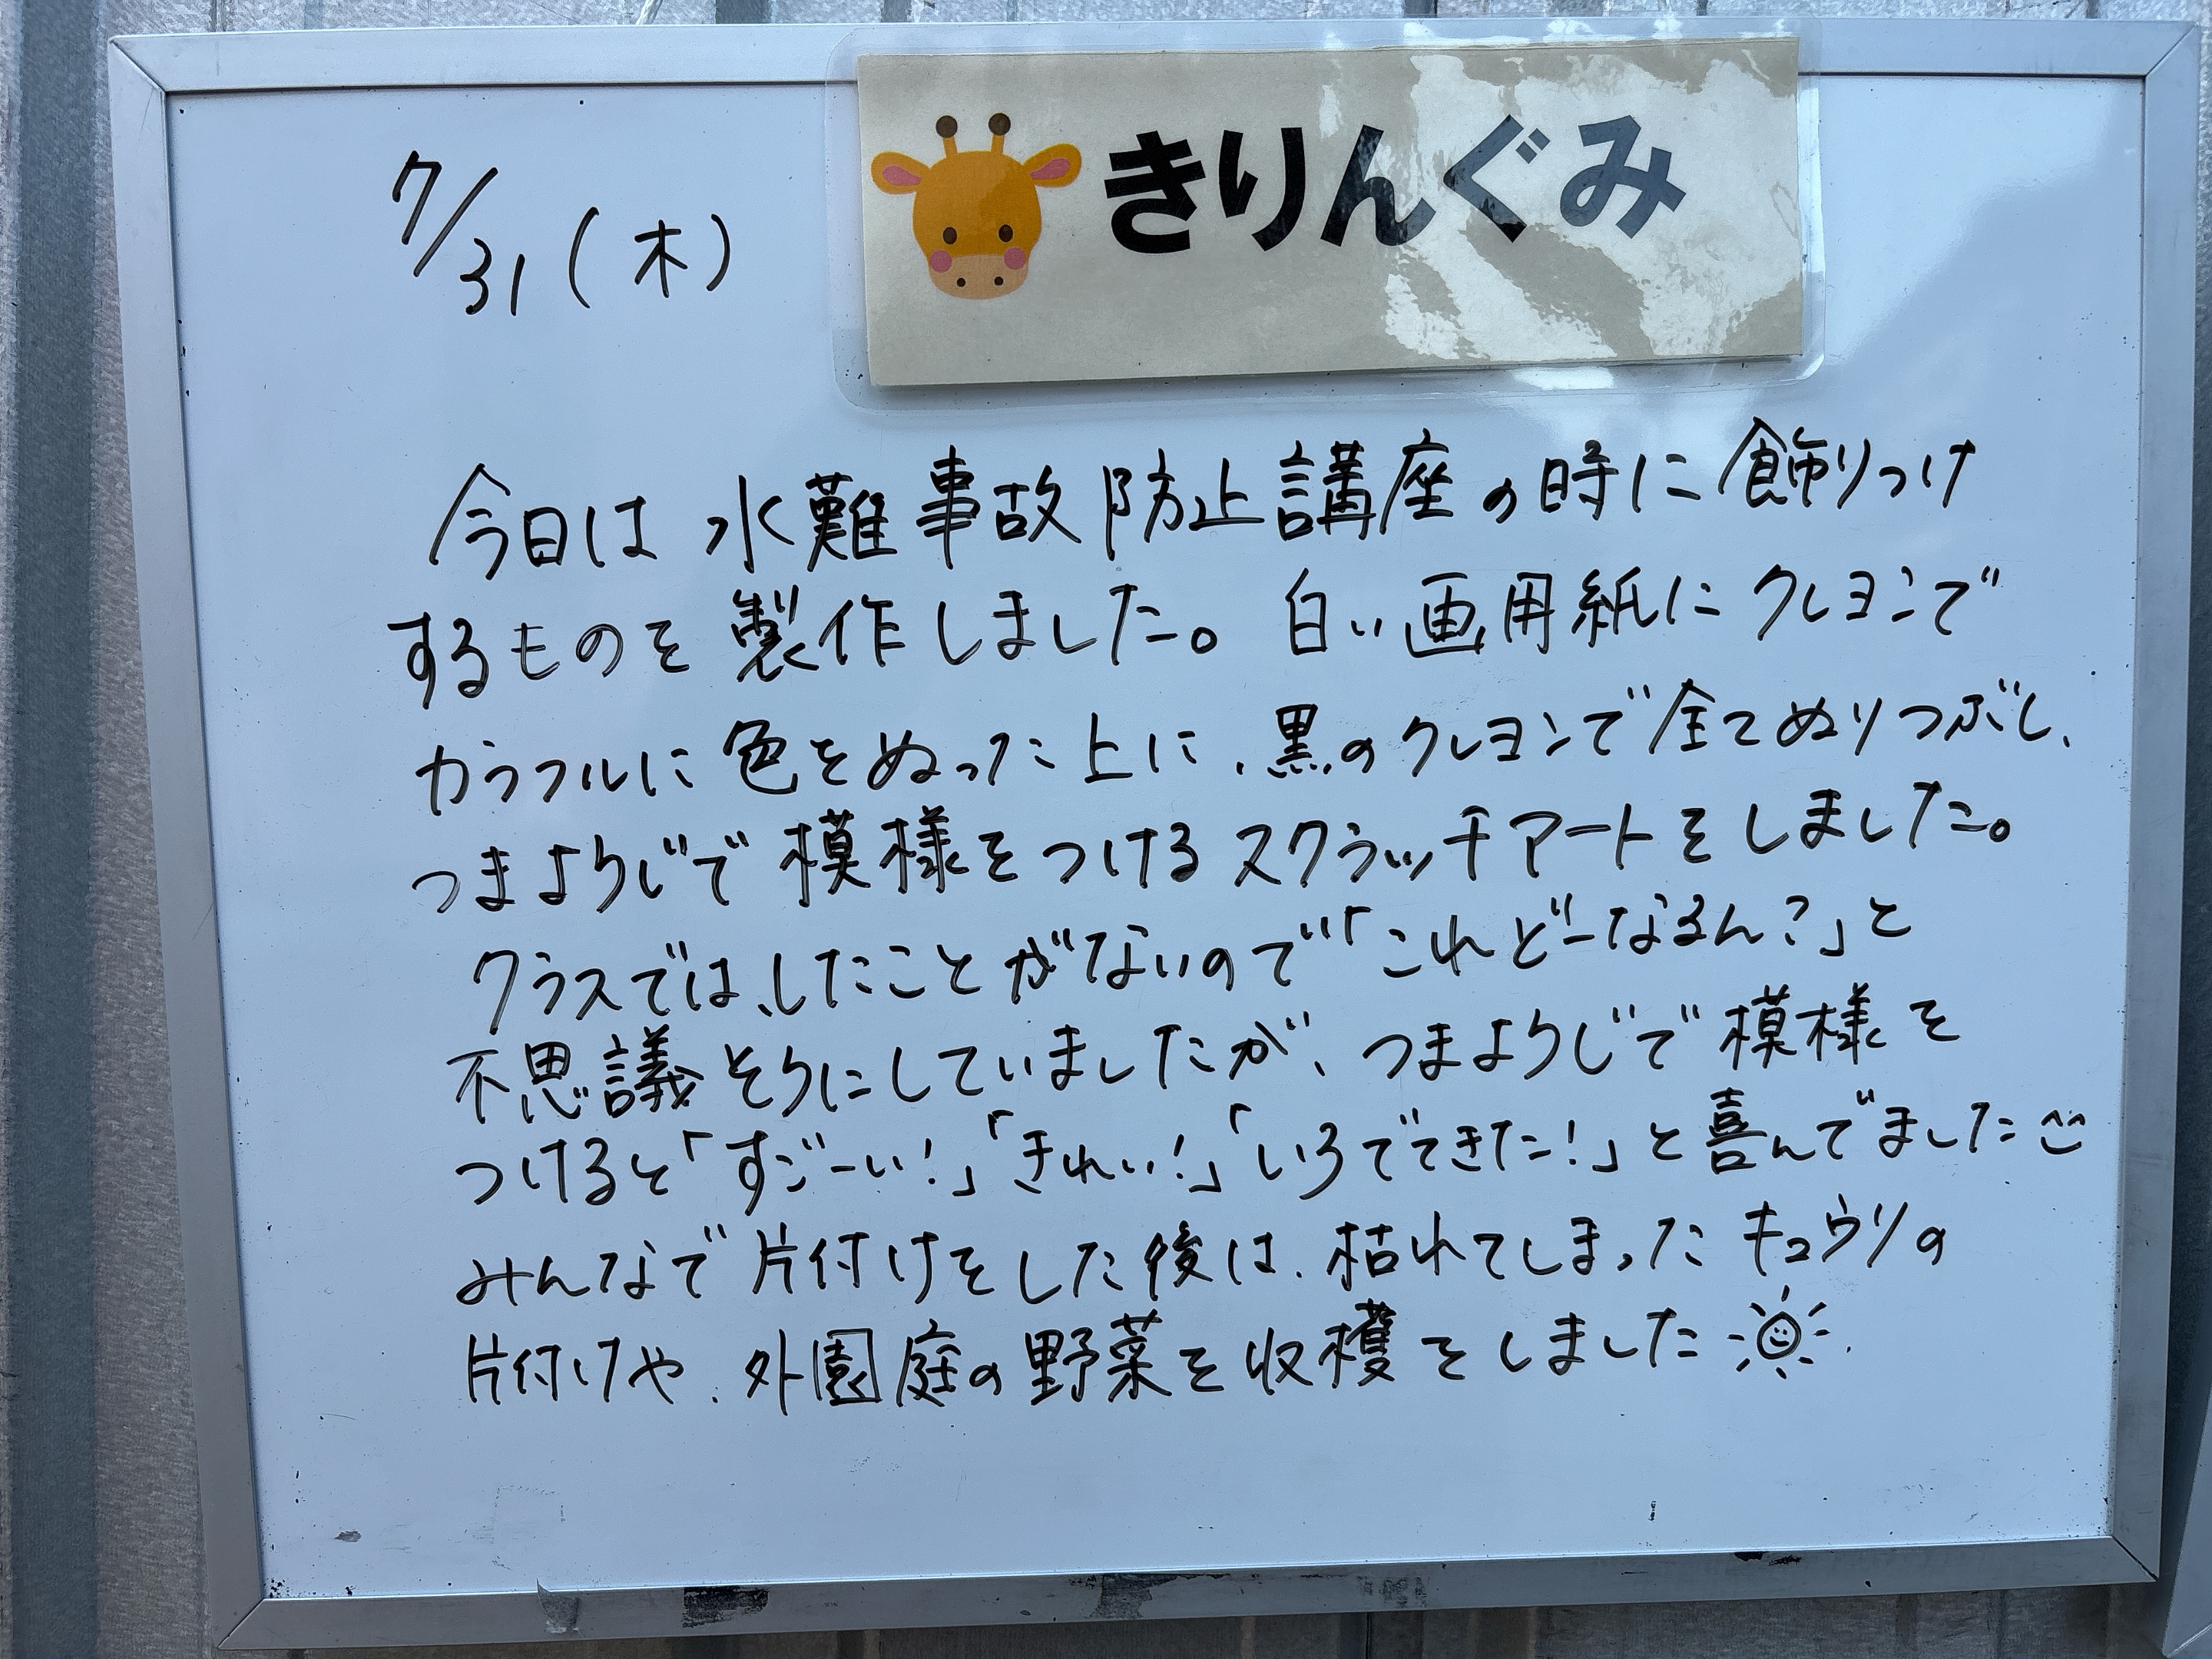 きりんぐみ
7/31(木)
今日は水難事故防止講座の時に飾りつけ
するものを製作しました。白い画用紙にクレヨンで
カラフルに色をぬった上に、黒のクレヨンで全てぬりつぶし、
つまようじで模様をつけるスクラッチアートをしました。
クラスでは、したことがないので「これどーなるん?」と
不思議そうにしていましたが、つまようじで模様を
つけると「すごーい!」「きれい!」「いろでてきた!」と喜んでました
みんなで片付けをした後は、枯れてしまったキュウリの
片付けや、外園庭の野菜を収穫をしました